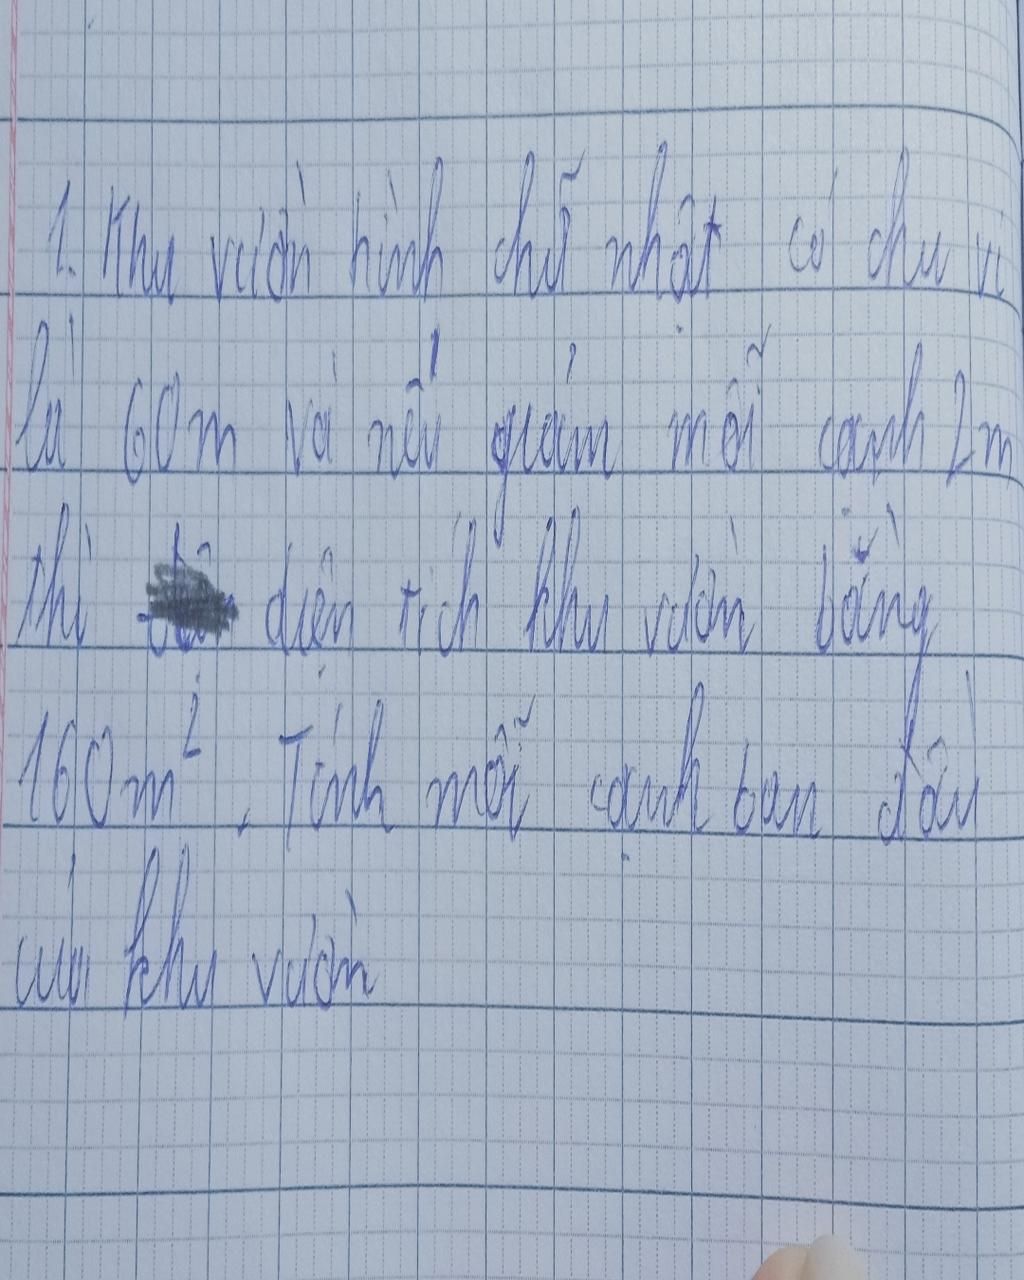 1. Khu vườn hình chữ nhật có chu vi
là 60m và nếu giảm mỗi cạnh 2m
thì diện tích khu vườn bằng
160m². Tính mỗi cạnh ban đầu
của khu vườn